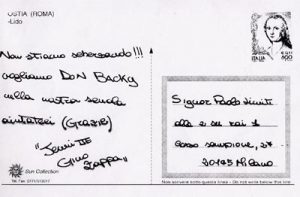 OSTIA (ROMA)
-Lido
Non stiamo scherzando!!!
vogliamo DON BACKY
nella nostra scuola
aiutateci (Grazie)
Gino Zappa"
Sun Collection
ITALIA
800
Signor Paolo Limiti
c/o e su rai 1
corso sempione, 27
20145 Milano
Non scrivere sotto questa linea - Do not write below this line